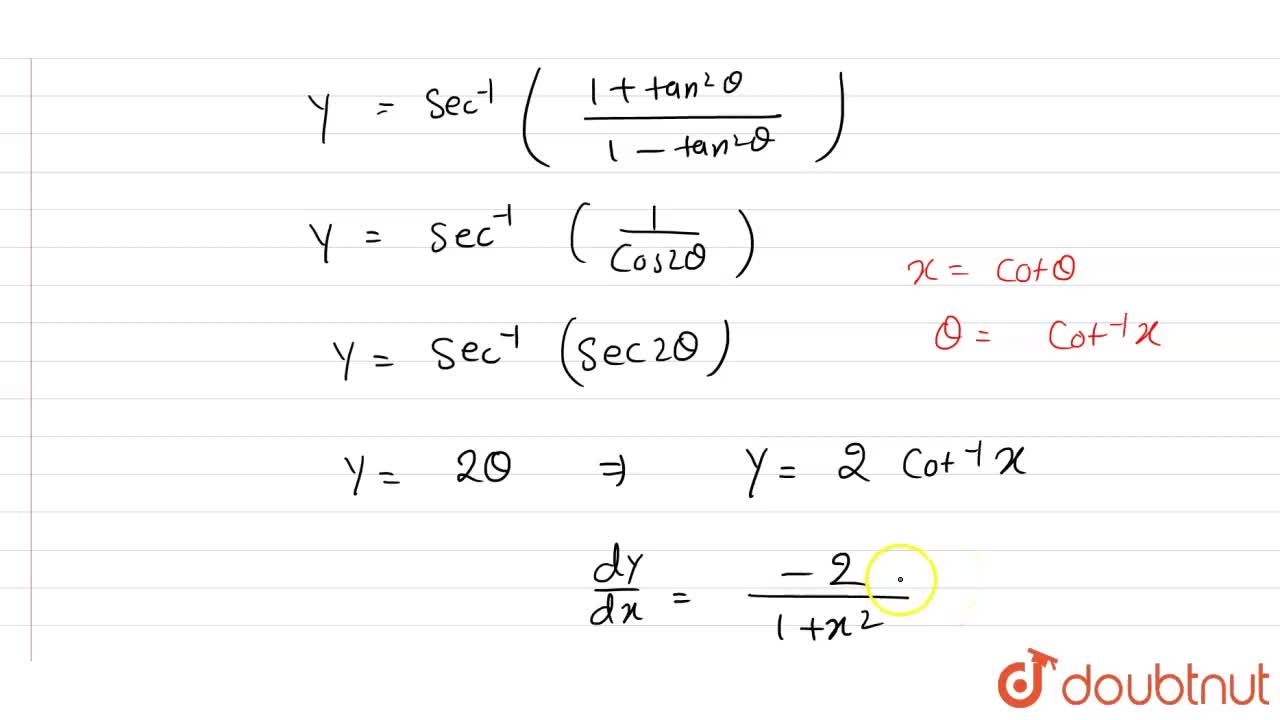 y = sec⁻¹ ( (1 + tan²θ) / (1 − tan²θ) )
y = sec⁻¹ ( 1 / cos2θ )
x = cotθ
y = sec⁻¹ (sec2θ)
θ = cot⁻¹x
y = 2θ ⇒ y = 2 cot⁻¹x
dy/dx = −2 / (1+x²)
doubtnut